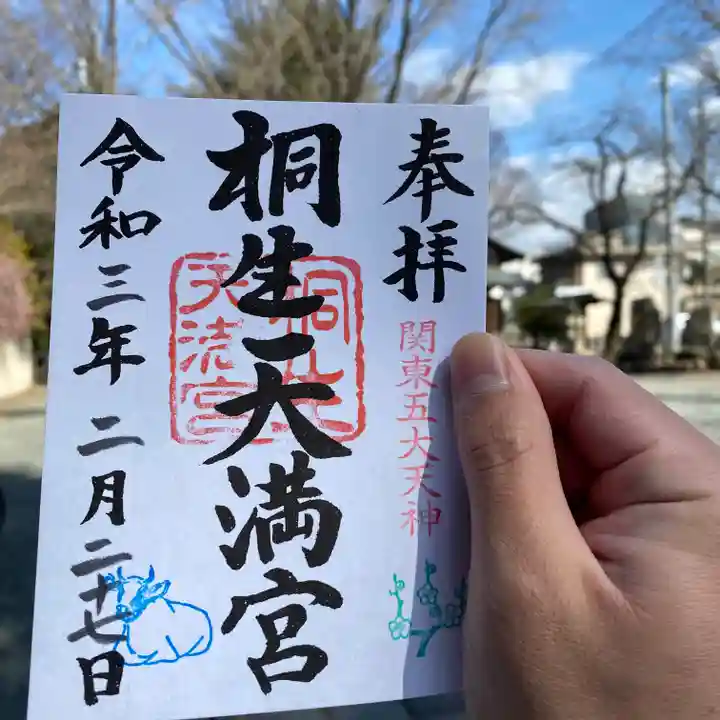 奉拝
関東五大天神
桐生天満宮
桐生天満宮
令和三年 二月二十七日